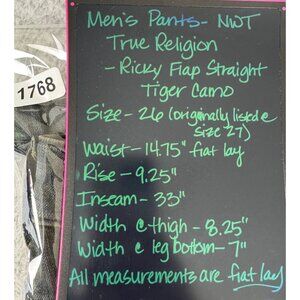 Men's Pants - NWT
True Religion
- Ricky Flap Straight
Tiger Camo
Size - 26 (originally listed @
size 27)
Waist - 14.75" flat lay
Rise - 9.25"
Inseam - 33"
Width @ thigh - 8.25"
Width @ leg bottom - 7"
All measurements are flat lay
1768